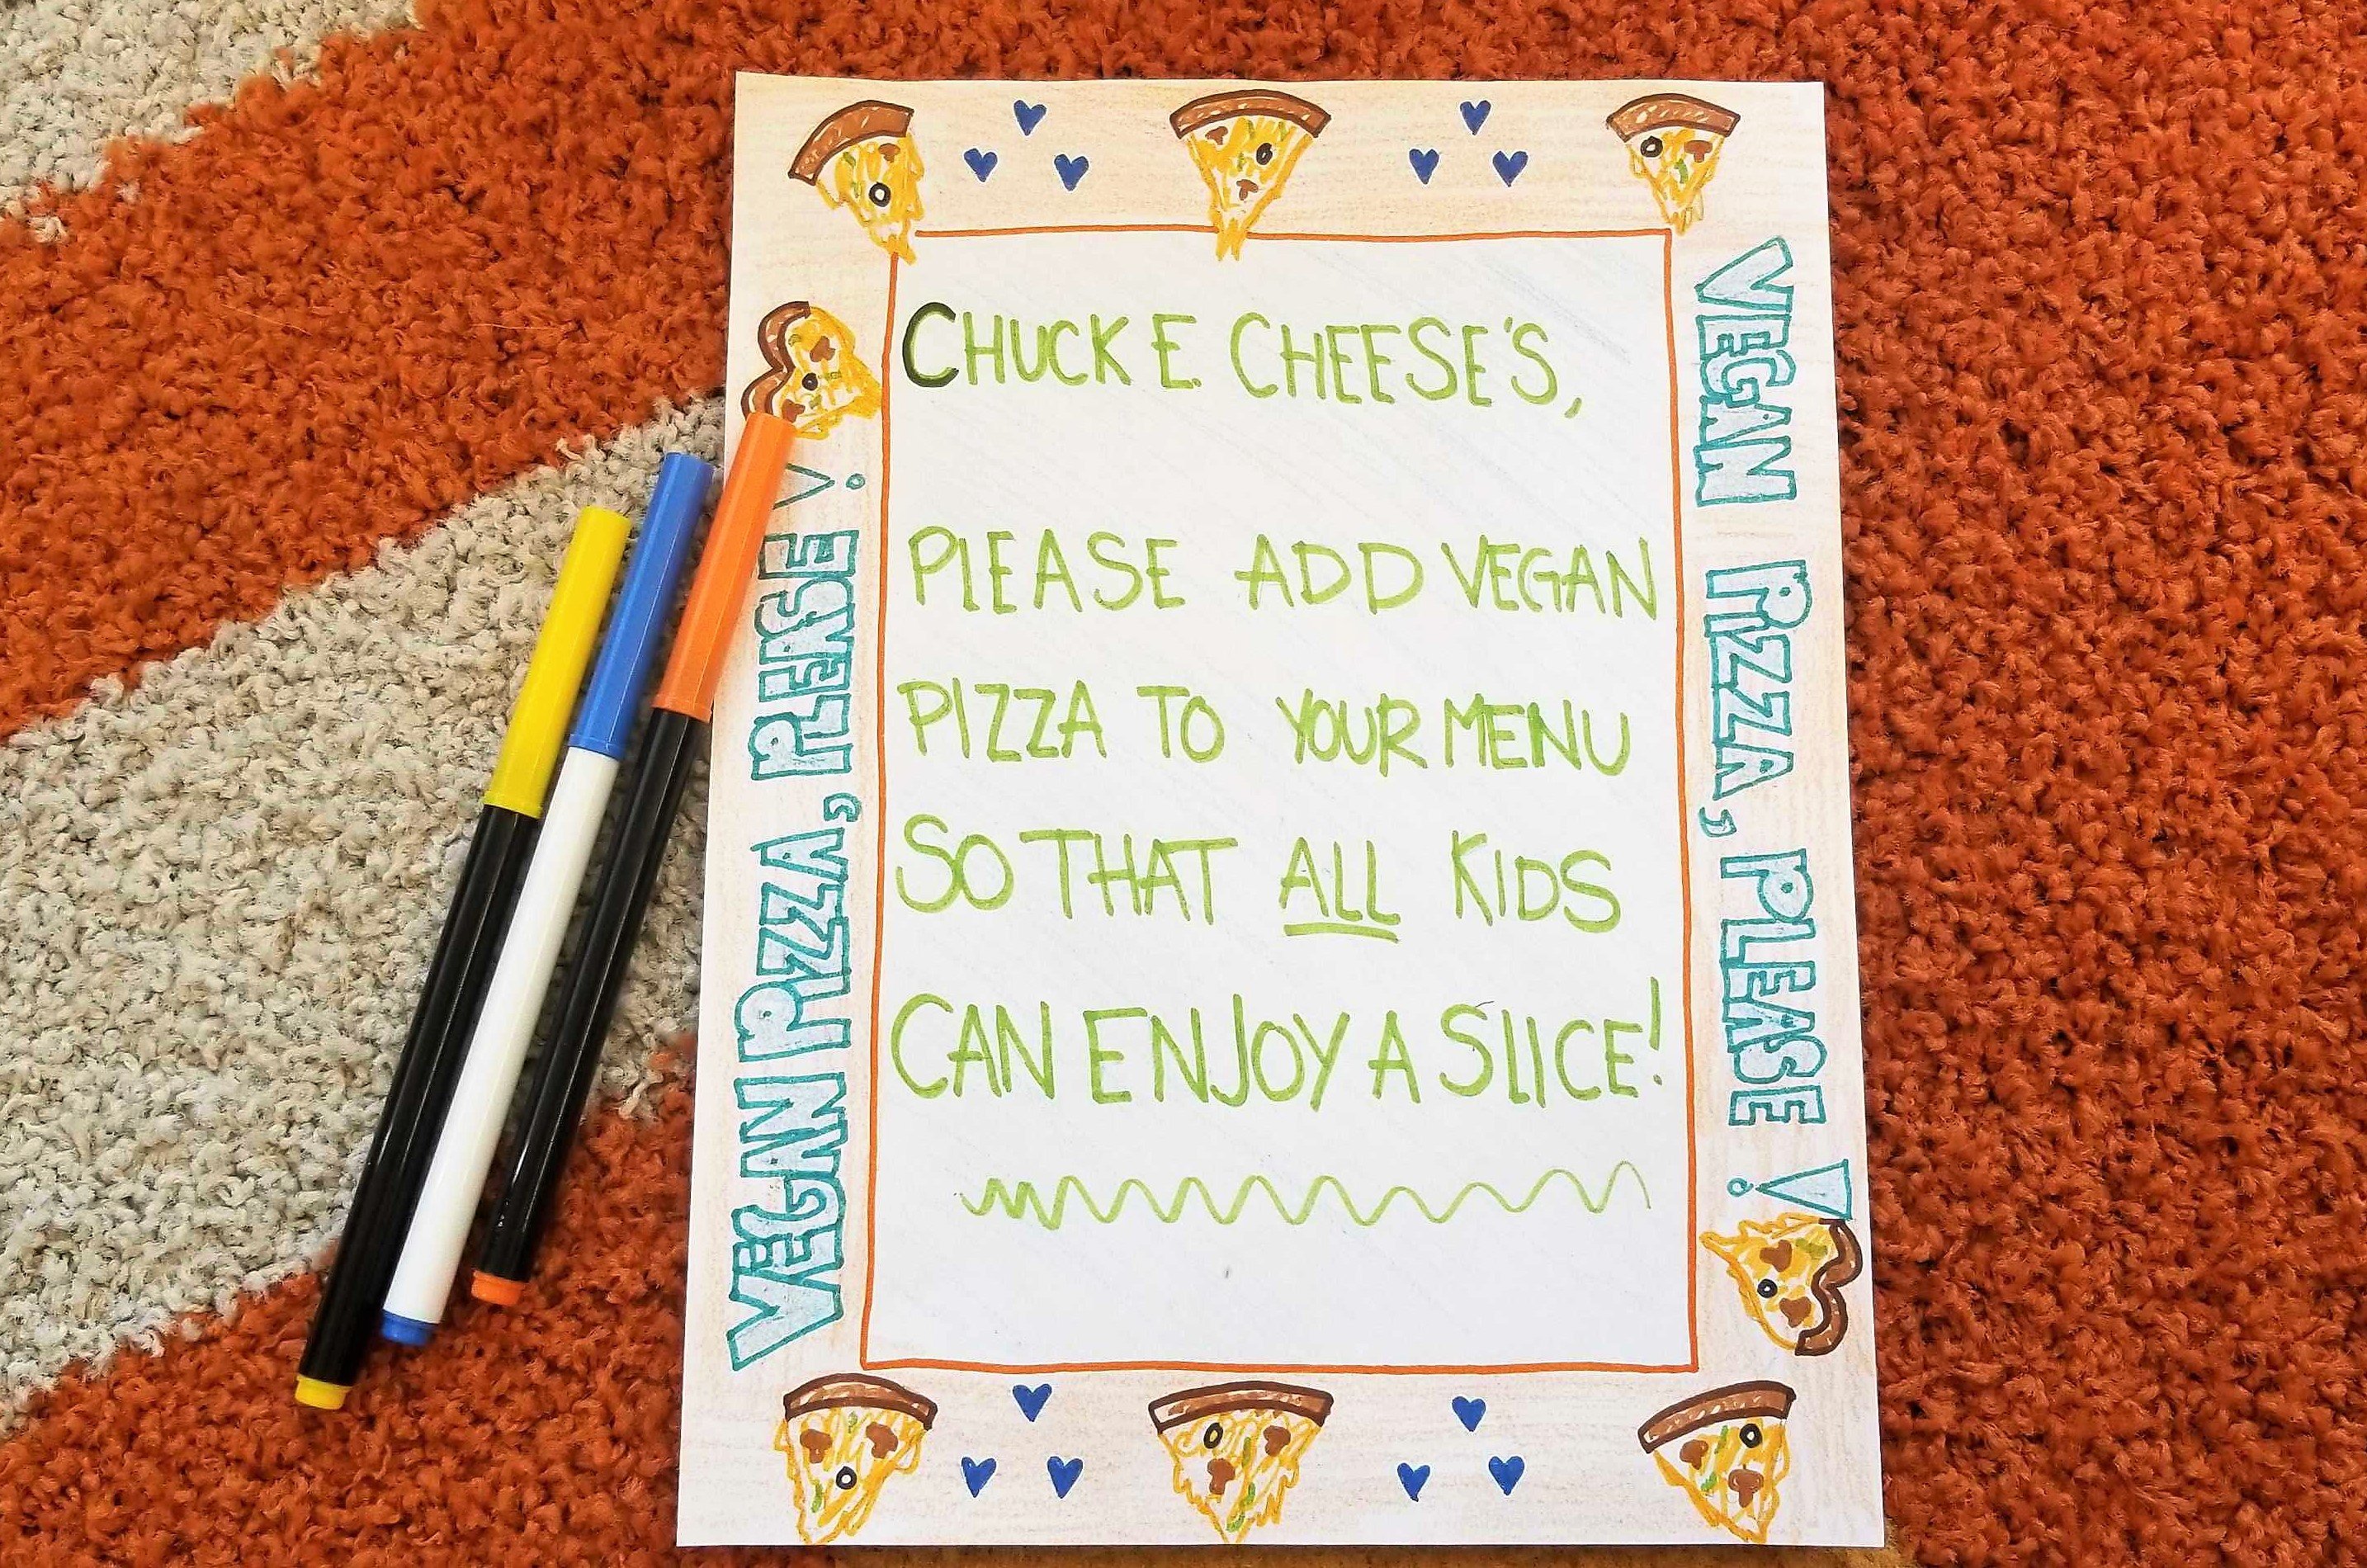 CHUCK E. CHEESE'S,
PLEASE ADD VEGAN
PIZZA TO YOUR MENU
SO THAT ALL KIDS
CAN ENJOY A SLICE!
VEGAN PIZZA, PLEASE!
VEGAN PIZZA, PLEASE!